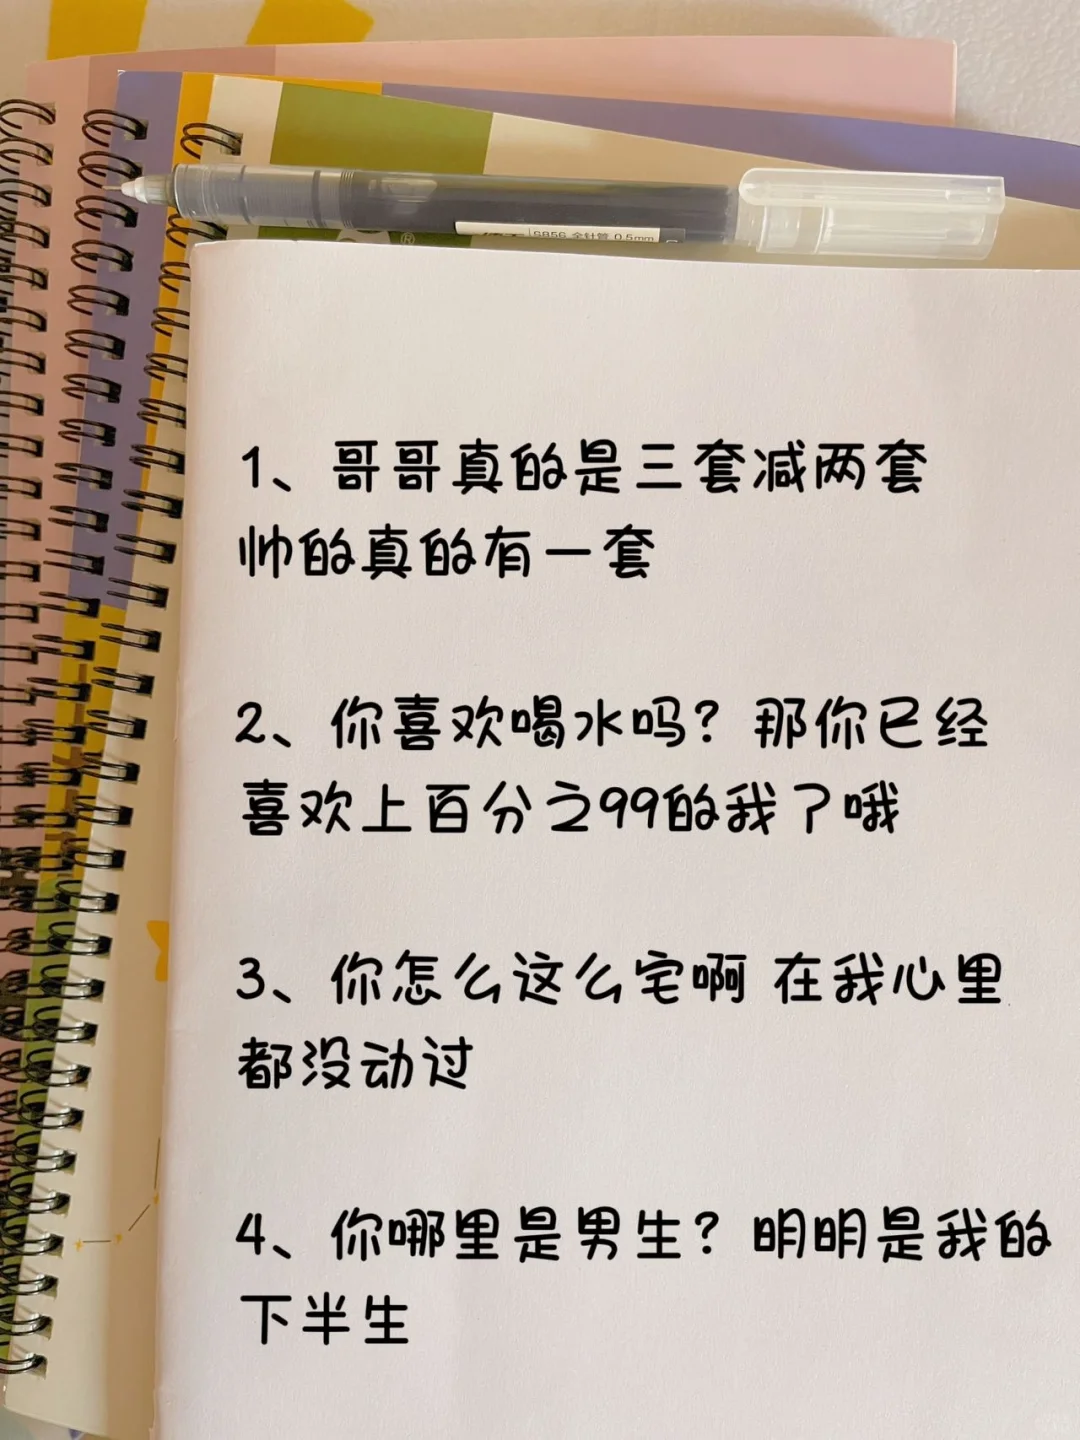 S856 全针管 0.5mm
1、哥哥真的是三套减两套
帅的真的有一套
2、你喜欢喝水吗？那你已经
喜欢上百分之99的我了哦
3、你怎么这么宅啊 在我心里
都没动过
4、你哪里是男生？明明是我的
下半生